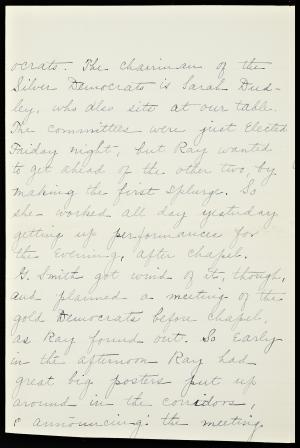 ocrats. The chairman of the
Silver Democrats is Sarah Dud-
ley, who also sits at our table.
The committees were just elected
Friday night, but Ray wanted
to get ahead of the other two, by
making the first splurge. So
she worked all day yesterday
getting up performances for
the evening, after chapel.
G. Smith got wind of it, though,
and planned a meeting of the
gold Democrats before chapel,
as Ray found out. So early
in the afternoon Ray had
great big posters put up
around in the corridors,
announcing the meeting.